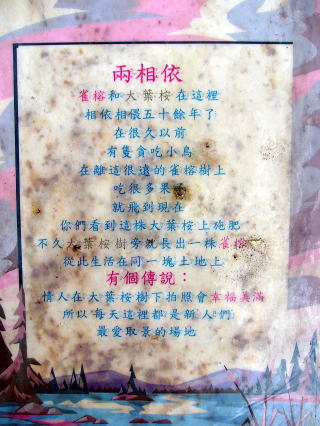 兩相依
雀榕和大葉桉在這裡
相依相偎五十餘年了
在很久以前
有隻貪吃小鳥
在離這很遠的雀榕樹上
吃很多果
就飛到現在
你們看到這株大葉桉上施肥
不久大葉桉樹旁就長出一株雀榕
從此生活在同一塊土地上
有個傳說：
情人在大葉桉樹下拍照會幸福美滿
所以每天這裡都是新人們
最愛取景的場地